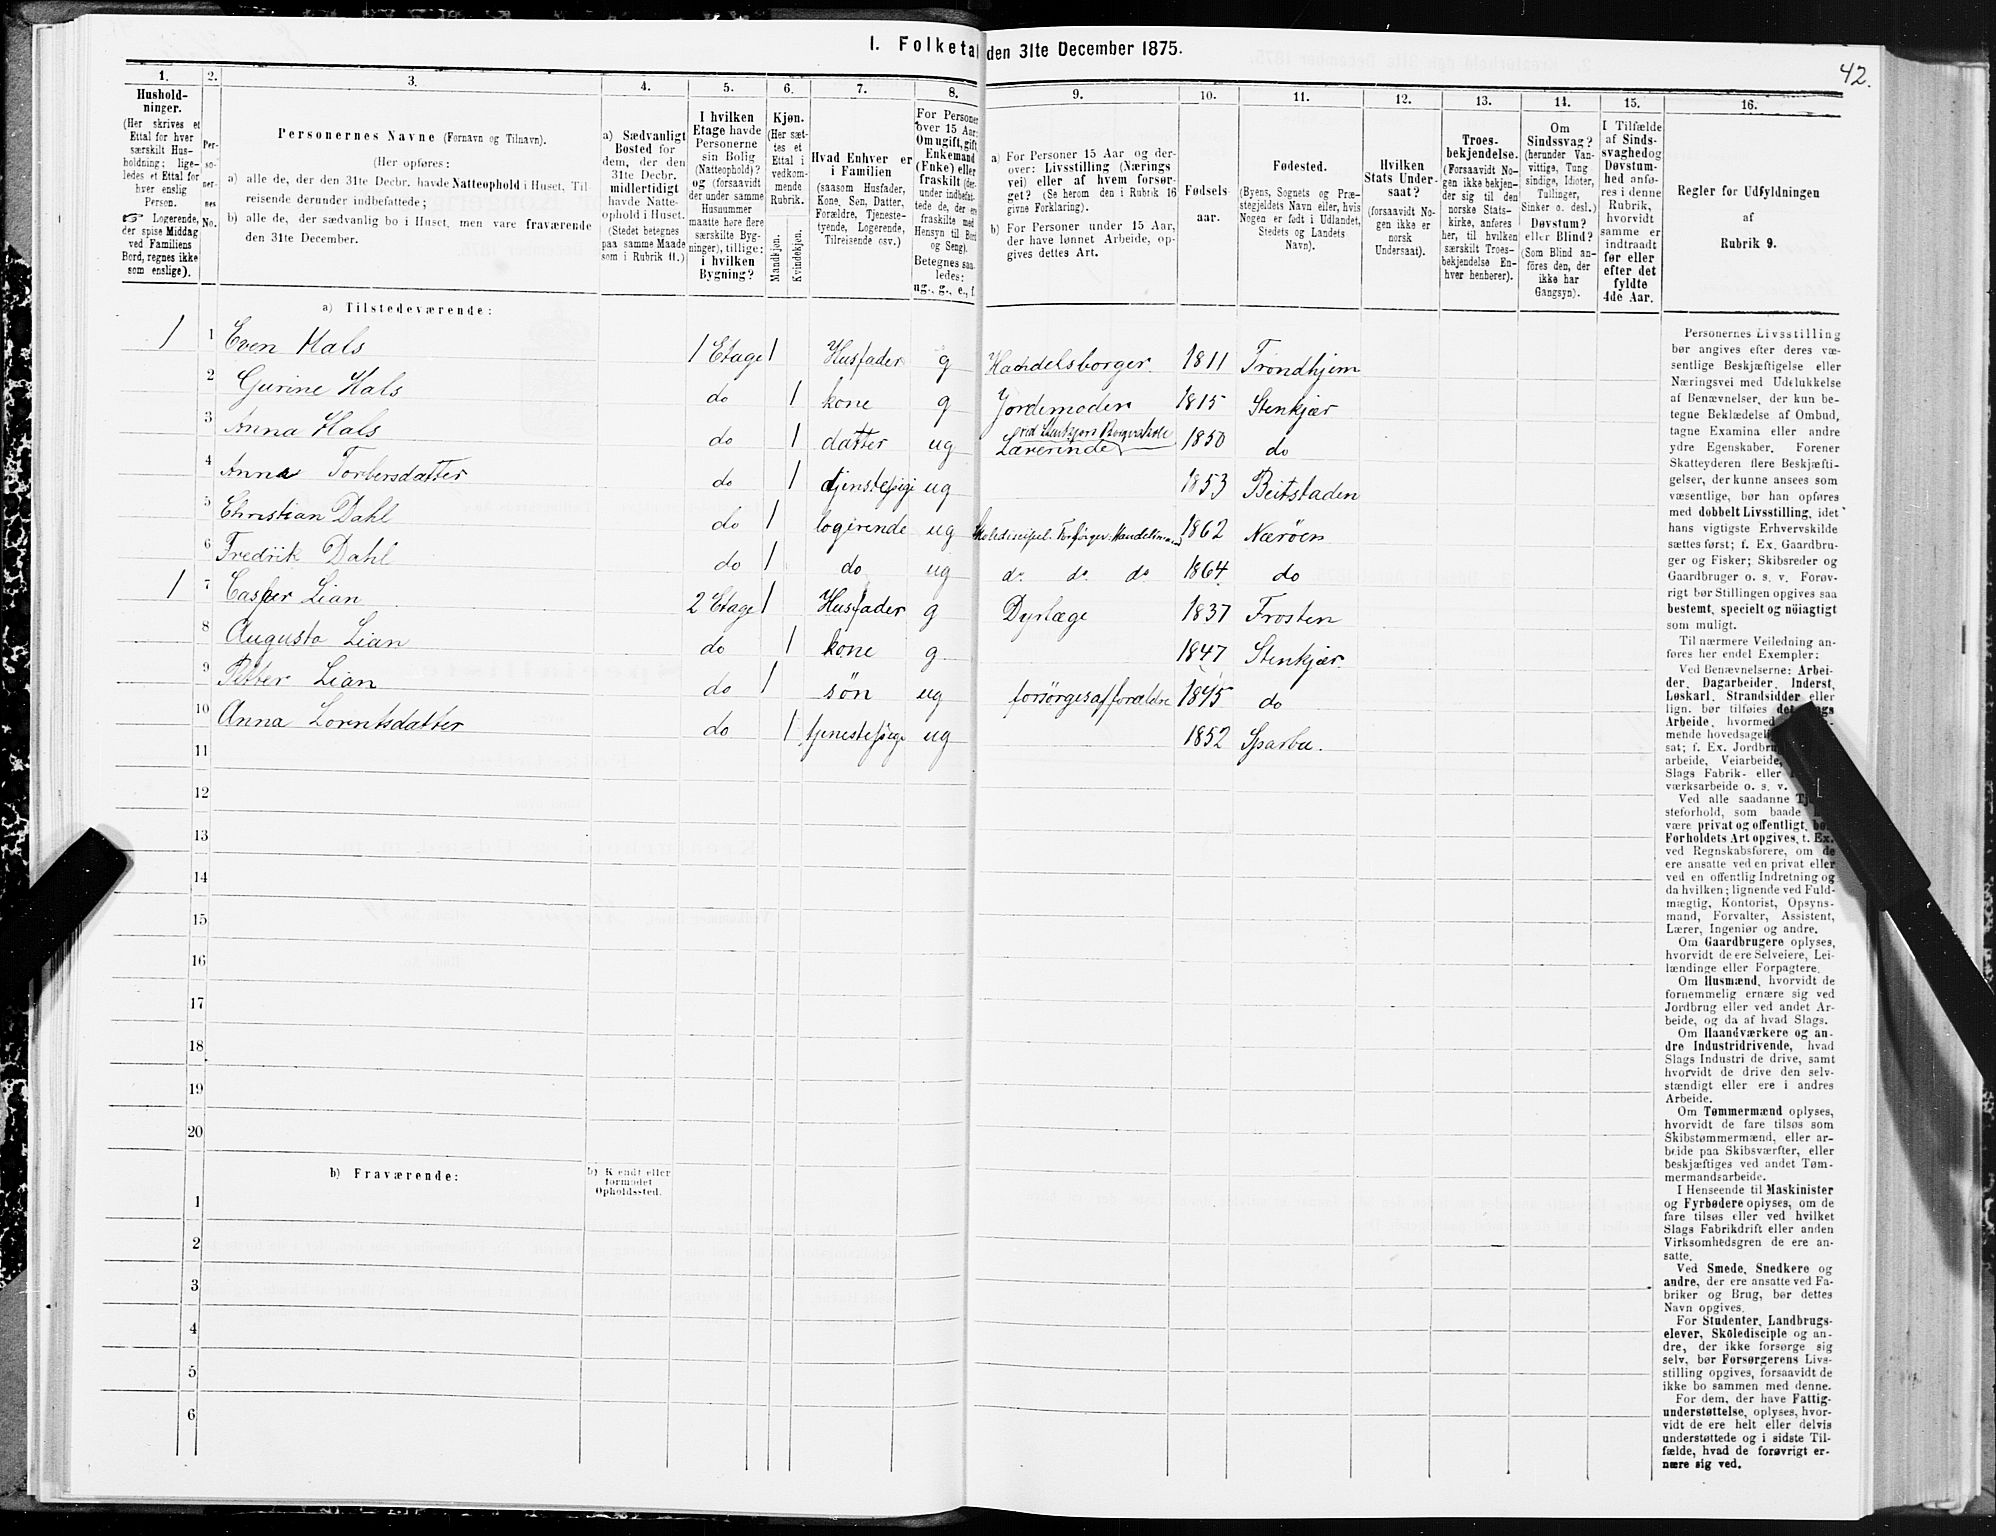 I. Folketal den 31te December 1875.
42.
1. 2. 3. 4. 5. 6. 7. 8. 9. 10. 11. 12. 13. 14. 15. 16.
Husholdninger. (Her skrives et Ettal for hver særskilt Husholdning; ligeledes et Ettal for hver enslig Person. ☞ Logerende, der spise Middag ved Familiens Bord, regnes ikke som enslige).
Personernes No.
Personernes Navne (Fornavn og Tilnavn).
(Her opføres:
a) alle de, der den 31te Decbr. havde Natteophold i Huset, Tilreisende derunder indbefattede;
b) alle de, der sædvanlig bo i Huset, men vare fraværende den 31te December.
a) Sædvanligt Bosted for dem, der den 31te Decbr. midlertidigt havde Natteophold i Huset. (Stedet betegnes paa samme Maade som i Rubrik 11.)
I hvilken Etage havde Personerne sin Bolig (Natteophold)? og (forsaavidt der under samme Husnummer maatte høre flere særskilte Bygninger), tillige: i hvilken Bygning?
Kjøn. (Her sættes et Ettal i vedkommende Rubrik. Mandkjøn. Kvindekjøn.
Hvad Enhver er i Familien (saasom Husfader, Kone, Søn, Datter, Forældre, Tjenestetyende, Logerende, Tilreisende osv.)
For Personer over 15 Aar: Om ugift, gift, Enkemand (Enke) eller fraskilt (derunder indbefattede de, der ere fraskilte med Hensyn til Bord og Seng). Betegnes saaledes: ug., g., e., f.
a) For Personer 15 Aar og derover: Livsstilling (Næringsvei) eller af hvem forsørget? (Se herom den i Rubrik 16 givne Forklaring).
b) For Personer under 15 Aar, der have lønnet Arbeide, opgives dettes Art.
Fødselsaar.
Fødested. (Byens, Sognets og Præstegjeldets Navn eller, hvis Nogen er født i Udlandet, Stedets og Landets Navn).
Hvilken Stats Undersaat? (forsaavidt Nogen ikke er norsk Undersaat).
Troesbekjendelse. (Forsaavidt Nogen ikke bekjender sig til den norske Statskirke, anføres her, til hvilken særskilt Troesbekjendelse Enhver henhører).
Om Sindssvag? (herunder Vanvittige, Tungsindige, Idioter, Tullinger, Sinker o. desl.) Døvstum? eller Blind? (Som Blind anføres den, der ikke har Gangsyn).
I Tilfælde af Sindssvaghed og Døvstumhed anføres i denne Rubrik, hvorvidt samme er indtraadt før eller efter det fyldte 4de Aar.
Regler for Udfyldningen af Rubrik 9.
a) Tilstedeværende:
1 1 Even Hals 1 Etage 1 Husfader g Handelsborger. 1811 Trondhjem
2 Gurine Hals do 1 kone g Jordemoder 1815 Stenkjær
3 Anna Hals do 1 datter ug Lærerinde ved Stenkjers Borgerskole 1850 do
4 Anna Torbersdatter do 1 tjenstepige ug 1853 Beitstaden
5 Christian Dahl do 1 logirende ug Skolediscipel. Forsørger: Handelsmand 1862 Nærøen
6 Fredrik Dahl do 1 do ug do. do. do 1864 do
1 7 Casper Lian 2 Etage 1 Husfader g Dyrlæge 1837 Frosten
8 Augusta Lian do 1 kone g 1847 Stenkjær
9 Petter Lian do 1 søn ug forsørges af forældre do
10 Anna Lorntsdatter do 1 tjenestepige ug 1852 Sparbu.
11
12
13
14
15
16
17
18
19
20
b) Fraværende:
b) Kjendt eller formodet Opholdssted.
1
2
3
4
5
6
Personernes Livsstilling
bør angives efter deres væ-
sentlige Beskjæftigelse eller
Næringsvei med Udelukkelse
af Benævnelser, der kun be-
tegne Beklædelse af Ombud,
tagne Examina eller andre
ydre Egenskaber. Forener
Skatteyderen flere Beskjæfti-
gelser, der kunne ansees som
væsentlige, bør han opføres
med dobbelt Livsstilling, idet
hans vigtigste Erhvervskilde
sættes først; f. Ex. Gaardbru-
ger og Fisker; Skibsreder og
Gaardbruger o. s. v. Forøv-
rigt bør Stillingen opgives saa
bestemt, specielt og nöiagtigt
som muligt.
Til nærmere Veiledning an-
føres her endel Exempler:
Ved Benævnelserne: Arbei-
der, Dagarbeider, Inderst,
Løskarl, Strandsidder eller
lign. bør tilføies det Slags
Arbeide, hvormed
mende hovedsagel
sat; f. Ex. Jordbru
arbeide, Veiarbeide,
Slags Fabrik- eller
værksarbeide o. s. v.
Ved alle saadanne Tje-
steforhold, som baade
være privat og offentligt, bør
Forholdets Art opgives, t. Ex.
ved Regnskabsførere, om de
ere ansatte ved en privat eller
ved en offentlig Indretning og
da hvilken; lignende ved Fuld-
mægtig, Kontorist, Opsyns-
mand, Forvalter, Assistent,
Lærer, Ingeniør og andre.
Om Gaardbrugere oplyses,
hvorvidt de ere Selveiere, Lei-
lændinge eller Forpagtere.
Om Husmænd, hvorvidt de
fornemmelig ernære sig ved
Jordbrug eller ved andet Ar-
beide, og da af hvad Slags.
Om Haandværkere og an-
dre Industridrivende, hvad
Slags Industri de drive, samt
hvorvidt de drive den selv-
stændigt eller ere i andres
Arbeide.
Om Tømmermænd oplyses,
hvorvidt de fare tilsøs som
Skibstømmermænd, eller ar-
beide paa Skibsværfter, eller
beskjæftiges ved andet Tøm-
mermandsarbeide.
I Henseende til Maskinister
og Fyrbødere oplyses, om de
fare tilsøs eller ved hvilket
Slags Fabrikdrift eller anden
Virksomhedsgren de ere an-
satte.
Ved Smede, Snedkere og
andre, der ere ansatte ved Fa-
briker og Brug, bør dettes
Navn opgives.
For Studenter, Landbrugs-
elever, Skoledisciple og an-
dre, der ikke forsørge sig
selv, bør Forsørgerens Livs-
stilling opgives, forsaavidt de
ikke bo sammen med denne.
For dem, der have Fattig-
understøttelse, oplyses, hvor-
vidt de ere helt eller delvis
understøttede og i sidste Til-
fælde, hvad de forøvrigt er-
nære sig ved.